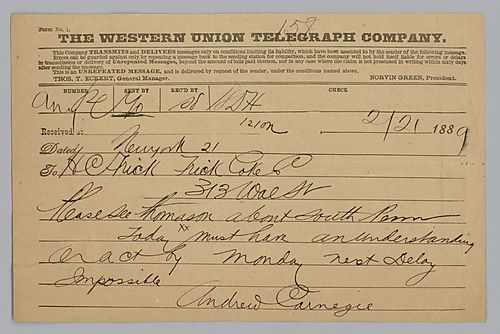 158
Form No. 1.
THE WESTERN UNION TELEGRAPH COMPANY.
This Company TRANSMITS and DELIVERS messages only on conditions limiting its liability, which have been assented to by the sender of the following message.
Errors can be guarded against only by repeating a message back to the sending station for comparison, and the company will not hold itself liable for errors or delays
in transmission or delivery of Unrepeated Messages, beyond the amount of tolls paid thereon, nor in any case where the claim is not presented in writing within sixty days
after sending the message.
This is an UNREPEATED MESSAGE, and is delivered by request of the sender, under the conditions named above.
THOS. T. ECKERT, General Manager. NORVIN GREEN, President.
NUMBER SENT BY REC'D BY CHECK
DH
Received at 2/21 1889
Dated New York 21
To H C Frick Frick Coke Co
313 Wae St
Please see Thomason about South Penn
Today xx must have an understanding
or act by Monday next Delay
Impossible
Andrew Carnegie